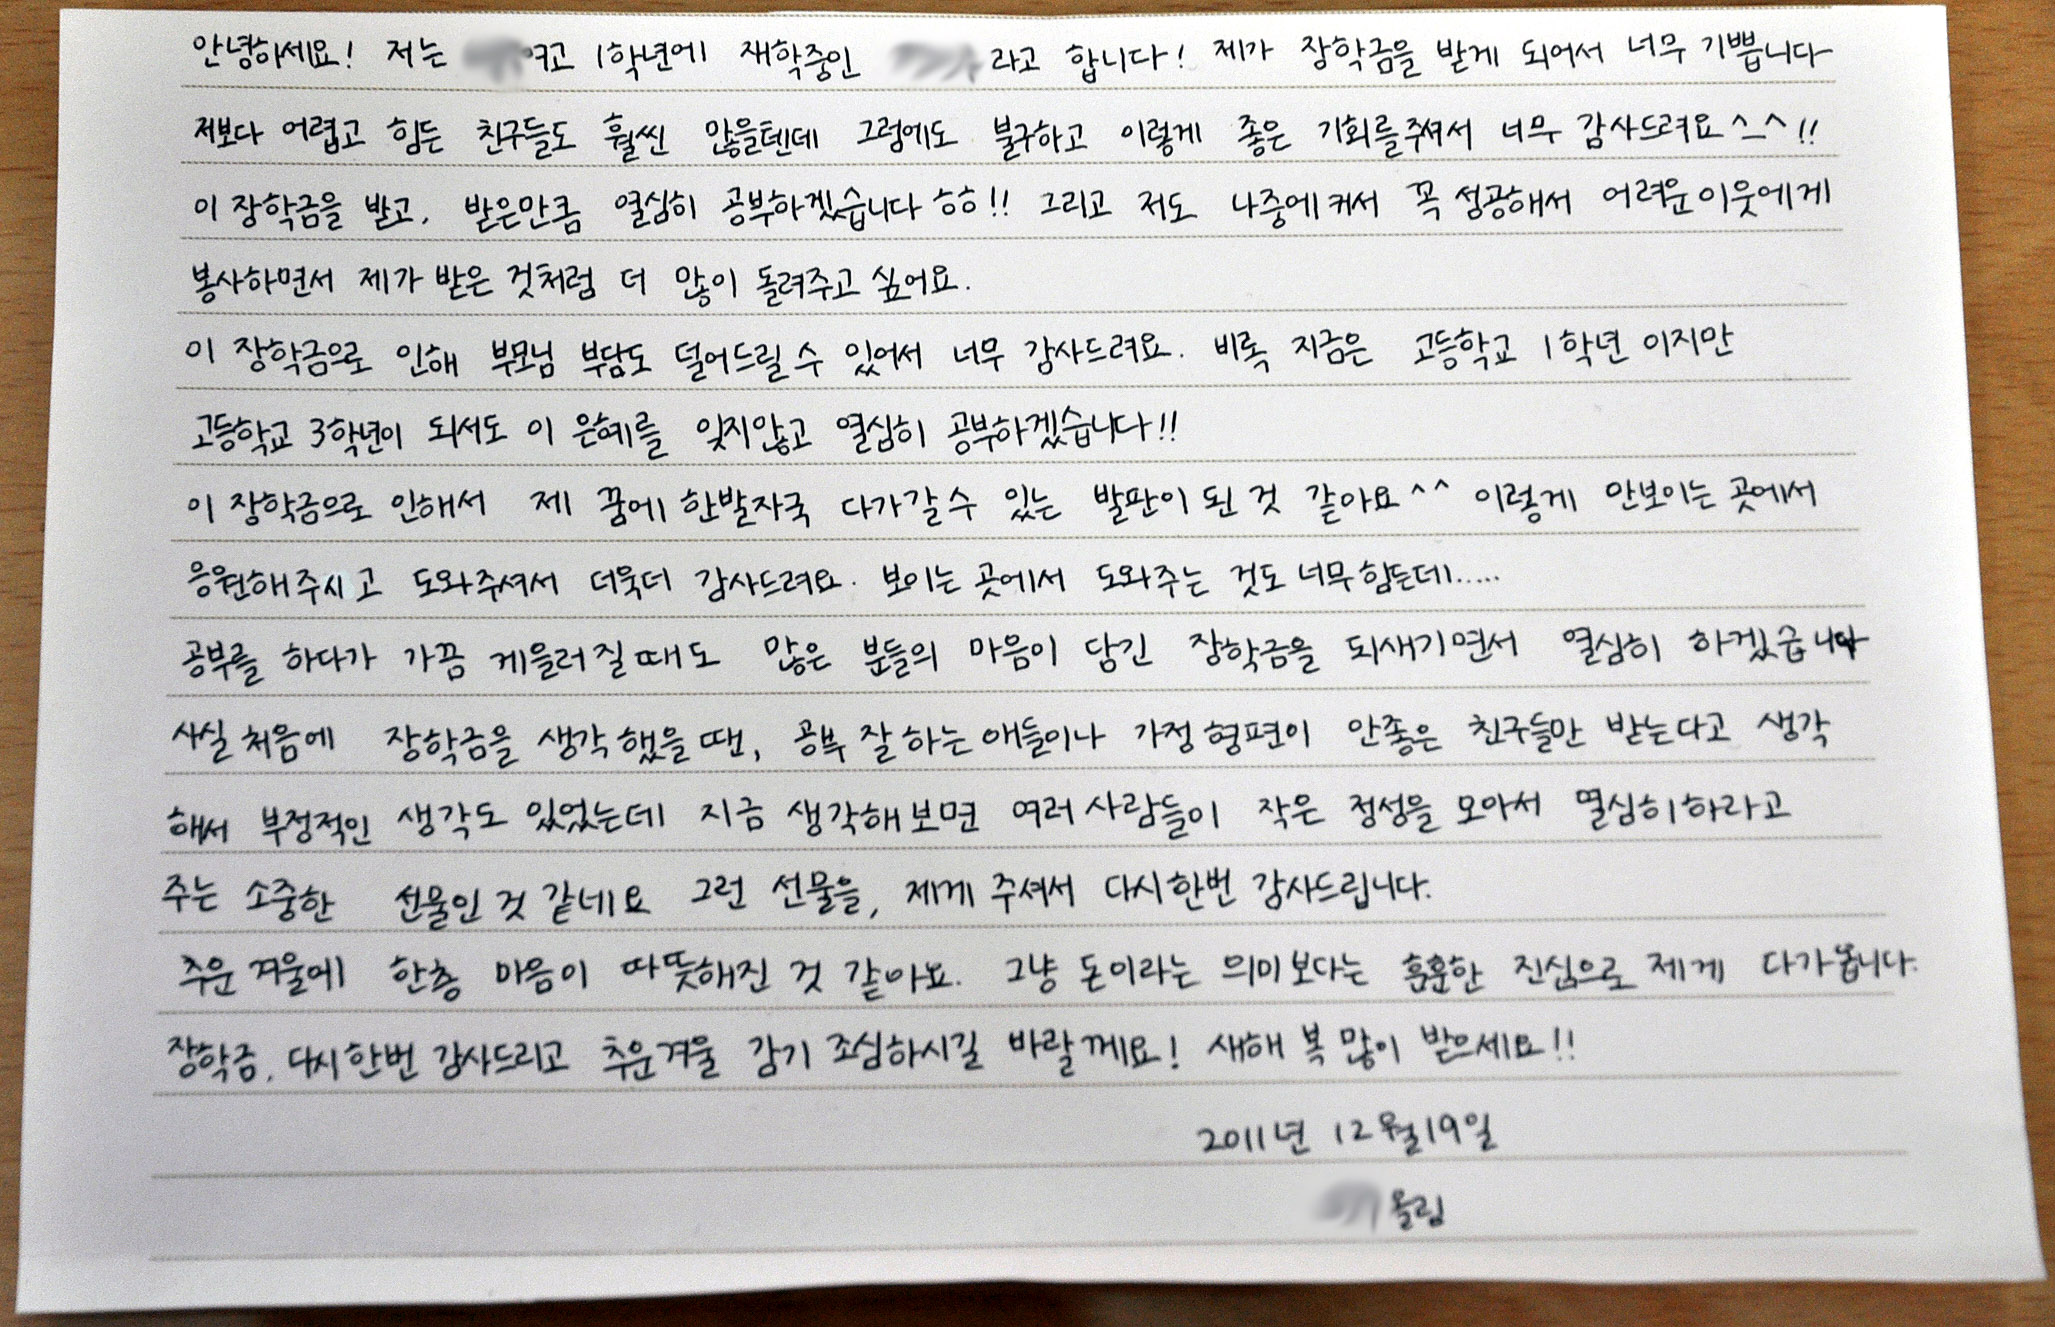 안녕하세요! 저는 여고 1학년에 재학중인 라고 합니다! 제가 장학금을 받게 되어서 너무 기쁩니다
저보다 어렵고 힘든 친구들도 훨씬 많을텐데 그럼에도 불구하고 이렇게 좋은 기회를주셔서 너무 감사드려요^_^!!
이 장학금을 받고, 받은만큼 열심히 공부하겠습니다ㅎㅎ!! 그리고 저도 나중에커서 꼭성공해서 어려운이웃에게
봉사하면서 제가 받은 것처럼 더 많이 돌려주고 싶어요.
이 장학금으로 인해 부모님 부담도 덜어드릴수 있어서 너무 감사드려요. 비록 지금은 고등학교 1학년이지만
고등학교 3학년이 되서도 이 은혜를 잊지않고 열심히 공부하겠습니다!!
이 장학금으로 인해서 제 꿈에 한발자국 다가갈수 있는 발판이 된 것 같아요^^ 이렇게 안보이는 곳에서
응원해주시고 도와주셔서 더욱더 감사드려요. 보이는 곳에서 도와주는 것도 너무힘든데.....
공부를 하다가 가끔 게을러질때도 많은 분들의 마음이 담긴 장학금을 되새기면서 열심히 하겠습니다
사실 처음에 장학금을 생각했을땐, 공부 잘하는 애들이나 가정형편이 안좋은 친구들만 받는다고 생각
해서 부정적인 생각도 있었는데 지금 생각해보면 여러 사람들이 작은 정성을 모아서 열심히하라고
주는 소중한 선물인 것 같네요 그런 선물을, 제게 주셔서 다시한번 감사드립니다.
추운 겨울에 한층 마음이 따뜻해진 것 같아요. 그냥 돈이라는 의미보다는 훈훈한 진심으로 제게 다가옵니다.
장학금, 다시한번 감사드리고 추운겨울 감기 조심하시길 바랄께요! 새해 복 많이 받으세요!!
2011년 12월19일
올림